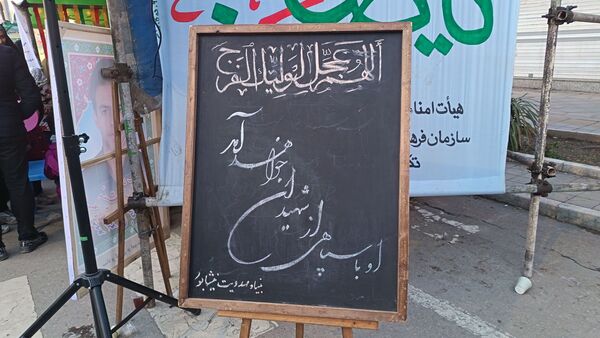 اللهم عجل لولیک الفرج
او با سپاهی
از شهیدان
خواهد آمد
بنیاد مهدویت نیشابور
هیأت امنا
سازمان فره